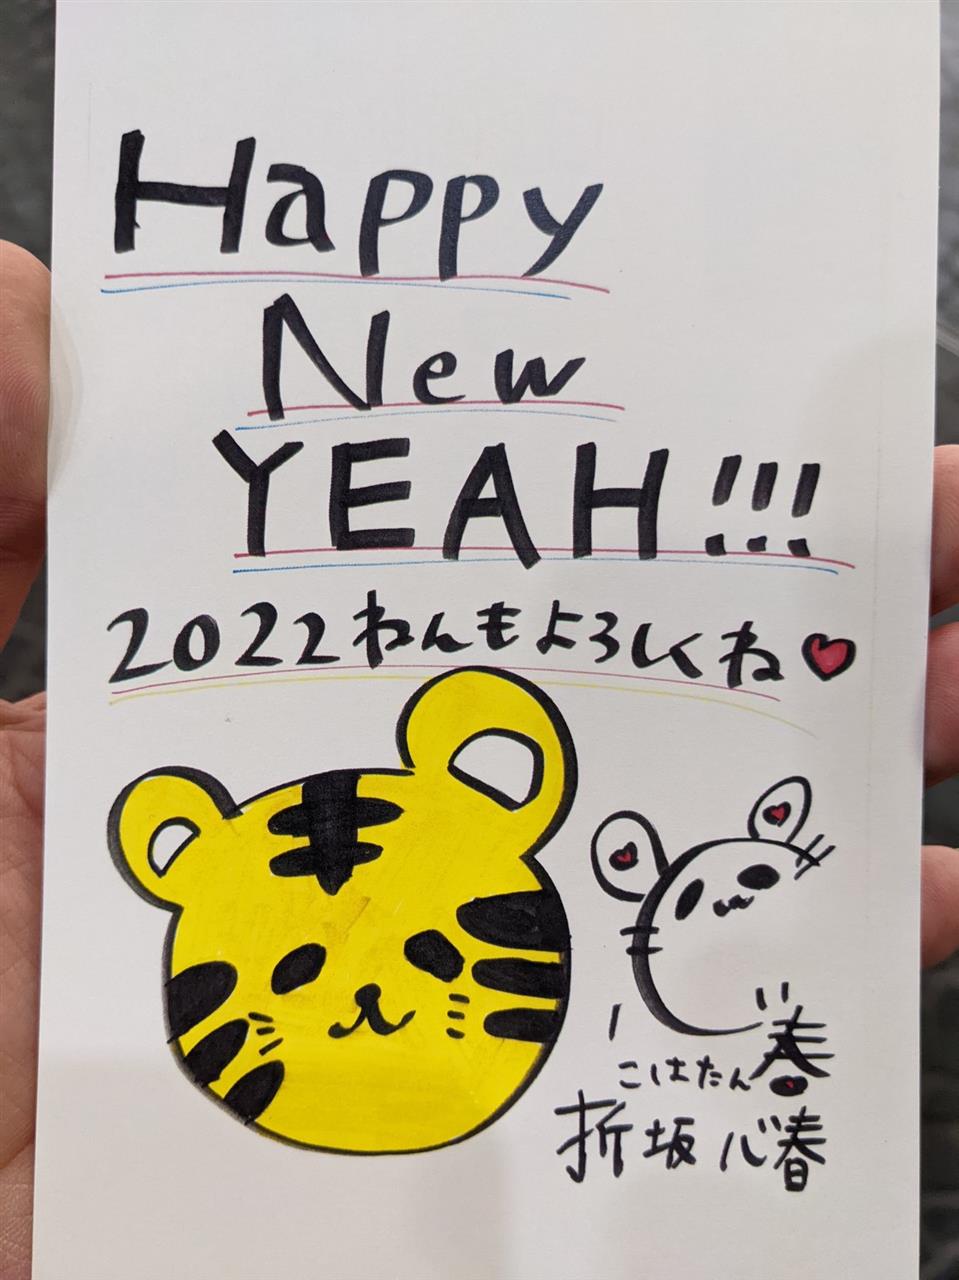 Happy
New
YEAH!!!
2022ねんもよろしくね♥
こはたん
折坂心春